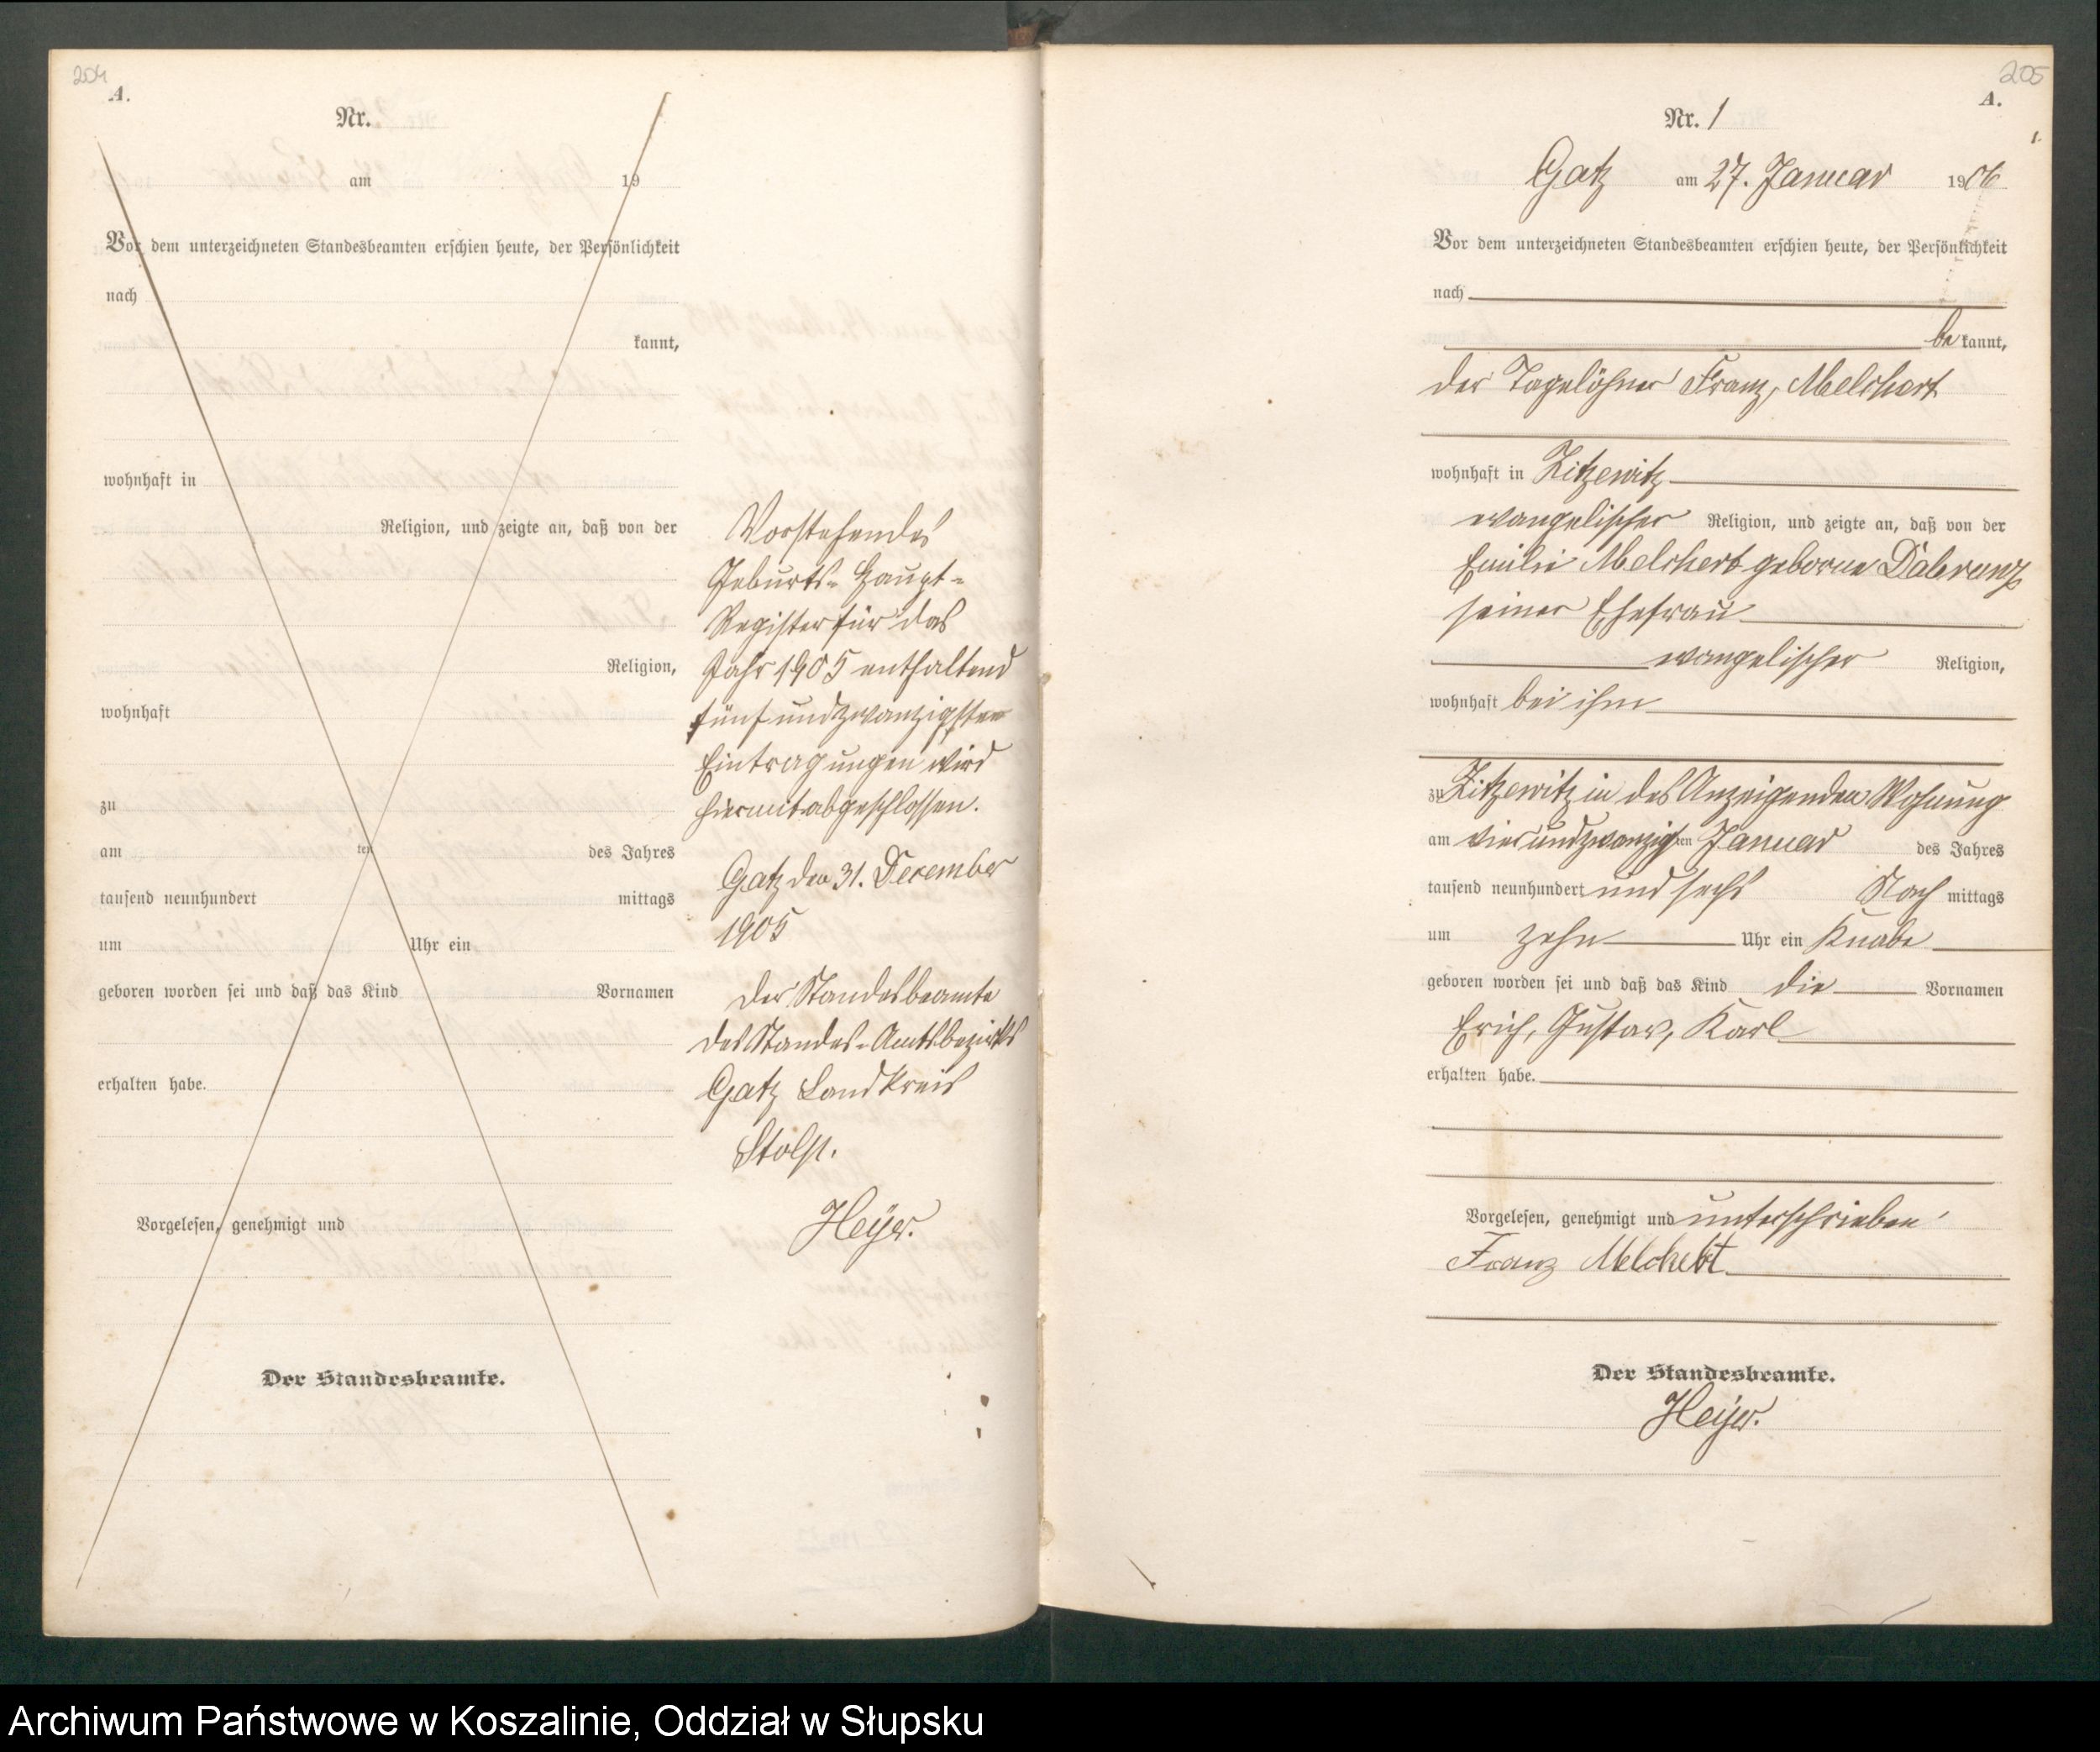 204
A.
Nr.
am 19
Vor dem unterzeichneten Standesbeamten erschien heute, der Persönlichkeit
nach
kannt,
wohnhaft in
Religion, und zeigte an, daß von der
Religion,
wohnhaft
zu
am ten des Jahres
tausend neunhundert mittags
um Uhr ein
geboren worden sei und daß das Kind Vornamen
erhalten habe.
Vorgelesen, genehmigt und
Der Standesbeamte.
Vorstehendes
Geburts- Haupt-
Register für das
Jahr 1905 enthaltend
fünfundzwanzigsten
Eintragungen wird
hiermit abgeschlossen.
Gatz den 31. December
1905
Der Standesbeamte
des Standes-Amtsbezirks
Gatz Landkreis
Stolp.
Heyer.
205
A.
1.
Nr. 1
Gatz am 27. Januar 1906
Vor dem unterzeichneten Standesbeamten erschien heute, der Persönlichkeit
nach
be kannt,
der Tagelöhner Franz, Melchert
wohnhaft in Zitzewitz
evangelischer Religion, und zeigte an, daß von der
Emilie Melchert geborne
seiner Ehefrau
evangelischer Religion,
wohnhaft bei ihm
zu Zitzewitz in des Anzeigenden Wohnung
am vierundzwanzigsten Januar des Jahres
tausend neunhundert und sechs Nach mittags
um zehn Uhr ein Knabe
geboren worden sei und daß das Kind die Vornamen
Erich, Gustav, Karl
erhalten habe.
Vorgelesen, genehmigt und unterschrieben
Franz Melchert
Der Standesbeamte.
Heyer.
Archiwum Państwowe w Koszalinie, Oddział w Słupsku